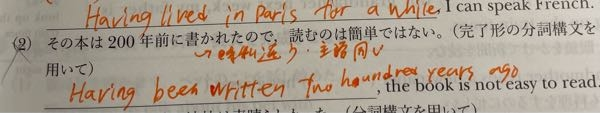 Having lived in Paris for a while, I can speak French.
(2) その本は200年前に書かれたので，読むのは簡単ではない。（完了形の分詞構文を
用いて）
Having been written two houndred years ago, the book is not easy to read.